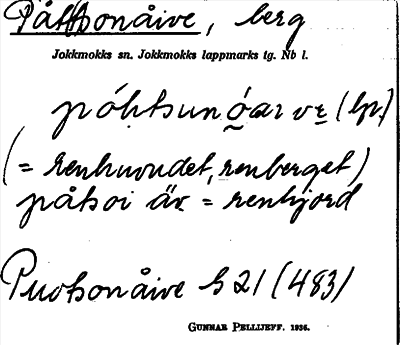 Påttsonåive, berg
Jokkmokks sn. Jokkmokks lappmarks tg. Nb l.
póhtsun óαivε (lp.)
(= renhuvudet, renberget)
påtsoi är = renhjord
Puotsonåive S 21 (483)
GUNNAR PELLIJEFF. 1936.